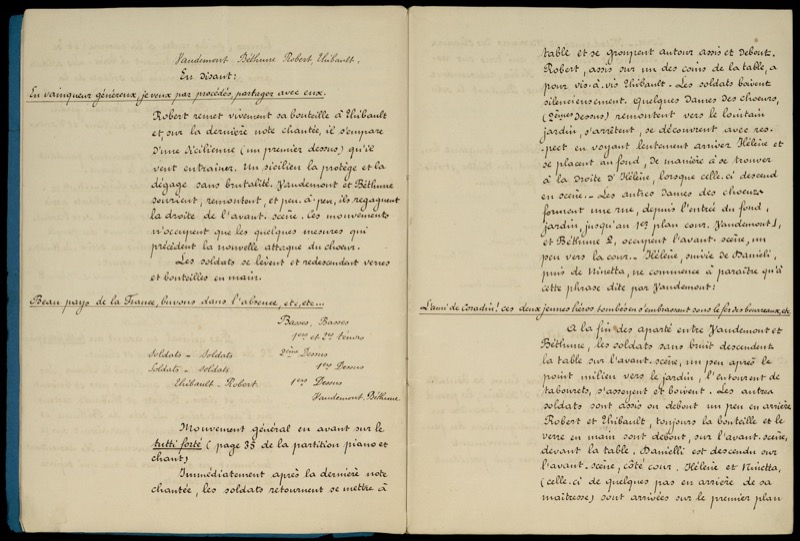 Vaudemont. Béthune Robert, Thibault.
En disant:
En vainqueur généreux, je veux par procédés, partager avec eux.
Robert remet vivement sa bouteille à Thibault
et sur la dernière note chantée, il s'empare
d'une Sicilienne (un premier dessus) qu'il
veut entraîner. Un sicilien la protège et la
dégage sans brutalité. Vaudemont et Béthune
sourient, remontent, et peu-à-peu, ils regagnent
la droite de l'avant-scène. Ces mouvements
n'occupent que les quelques mesures qui
précèdent la nouvelle attaque du choeur.
Les soldats se lèvent et redescendent verres
et bouteilles en main.
Beau pays de la France, buvons dans l'absence, etc, etc...
Basses, Basses
1ers et 2ds Ténors
Soldats - Soldats 2ème Dessus
Soldats - Soldats 1ers Dessus
Thibault - Robert. 1ers Dessus
Vaudemont. Béthune.
Mouvement général en avant sur le
tutti forté (page 35 de la partition piano et
chant)
Immédiatement après la dernière note
chantée, les soldats retournent se mettre à
table et se groupent autour assis et debout.
Robert, assis sur un des coins de la table, a
pour vis-à-vis Thibault. Les soldats boivent
silencieusement. Quelques Dames des choeurs,
(2èmes Dessus) remontent vers le lointain
jardin, s'arrêtent, se découvrent avec res-
pect en voyant lentement arriver Hélène et
se placent au fond, de manière à se trouver
à la droite d'Hélène, lorsque celle-ci descend
en scène. Les autres Dames des choeurs
forment une rue, depuis l'entrée du fond,
jardin, jusqu'au 1er plan cour. Vaudemont 1,
et Béthune 2, occupent l'avant-scène, un
peu vers la cour. Hélène, suivie de Daniéli,
puis de Ninetta, ne commence à paraître qu'à
cette phrase dite par Vaudemont:
L'ami de Coradin! ces deux jeunes héros tombés en s'embrassant sous le fer des bourreaux, etc
A la fin des aparté entre Vaudemont et
Béthune, les soldats sans bruit descendent
la table sur l'avant-scène, un peu après le
point milieu vers le jardin, l'entourent de
tabourets, s'asseyent et boivent. Les autres
soldats sont assis ou debout un peu en arrière
Robert et Thibault, toujours la bouteille et le
verre en main sont debout, sur l'avant-scène,
devant la table. Danielli est descendu sur
l'avant-scène, côté cour. Hélène et Ninetta,
(celle-ci de quelques pas en arrière de sa
maîtresse) sont arrivées sur le premier plan